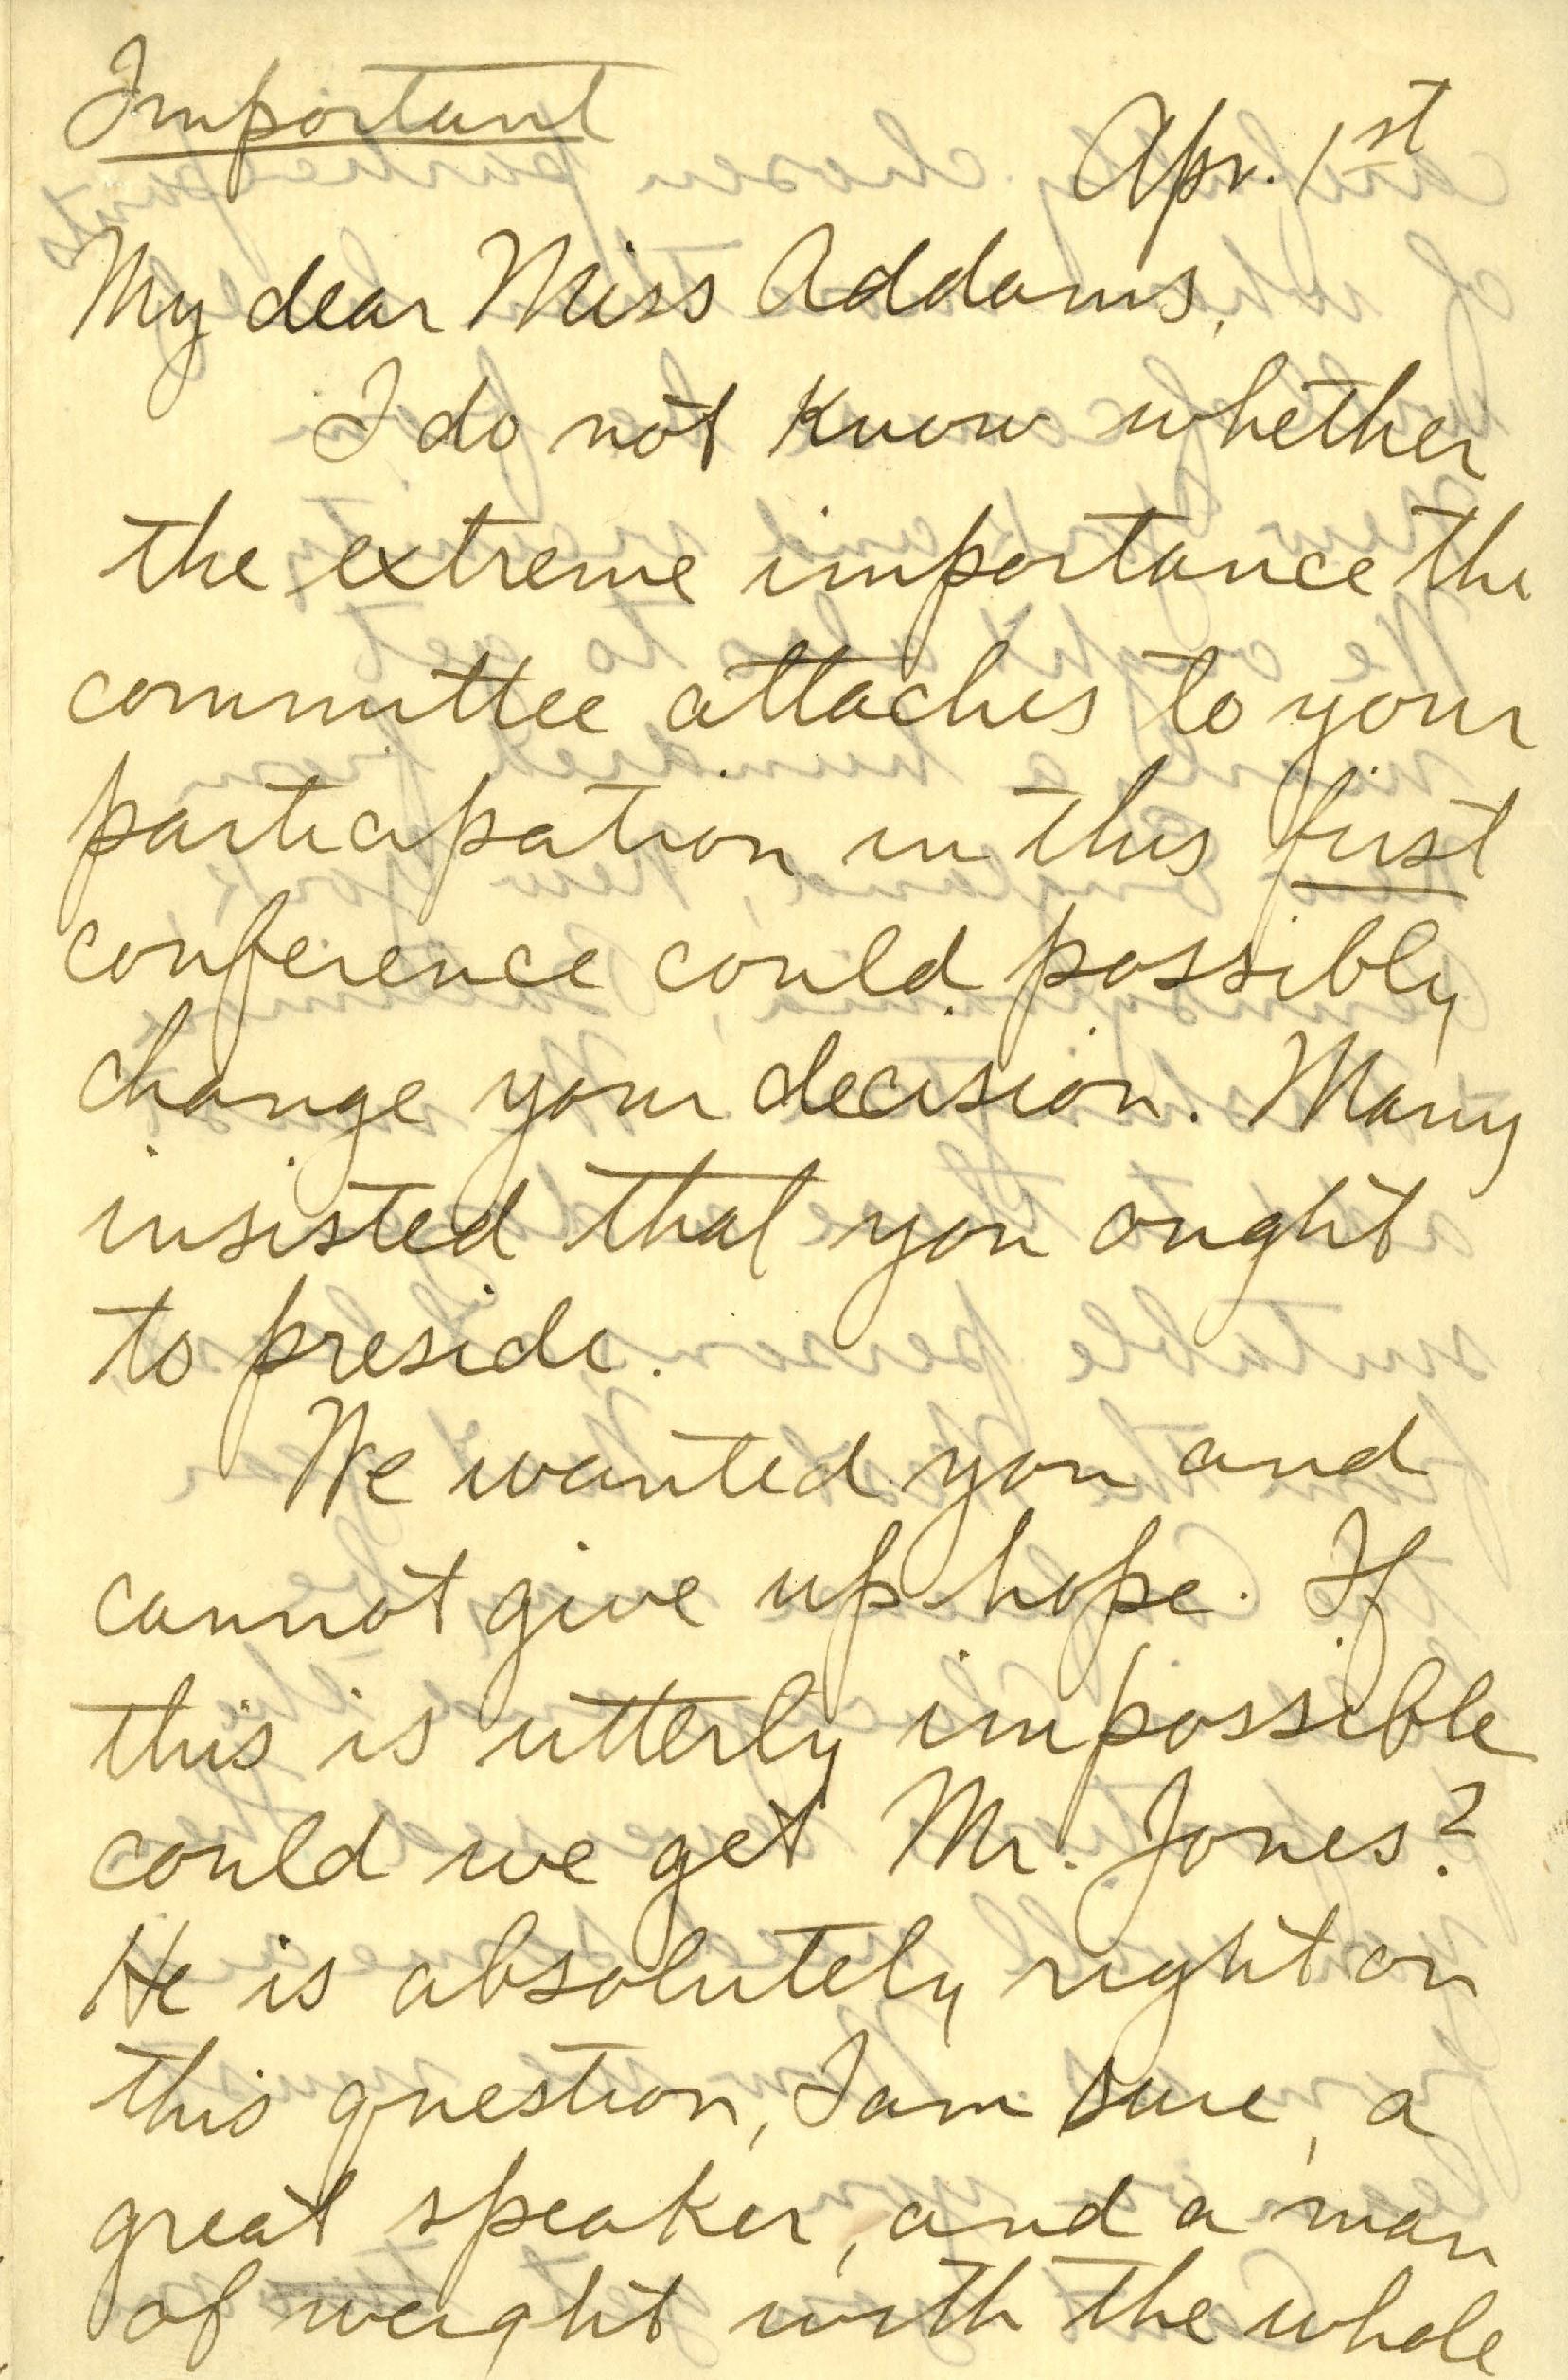 Important
Apr. 1st
My dear Miss Addams,
I do not know whether
the extreme importance the
committee attaches to your
participation in this first
conference could possibly
change your decision. Many
insisted that you ought
to preside.
We wanted you and
cannot give up hope. If
this is utterly impossible
could we get Mr. Jones?
He is absolutely right on
this question, I am sure, a
great speaker, and a man
of weight with the whole